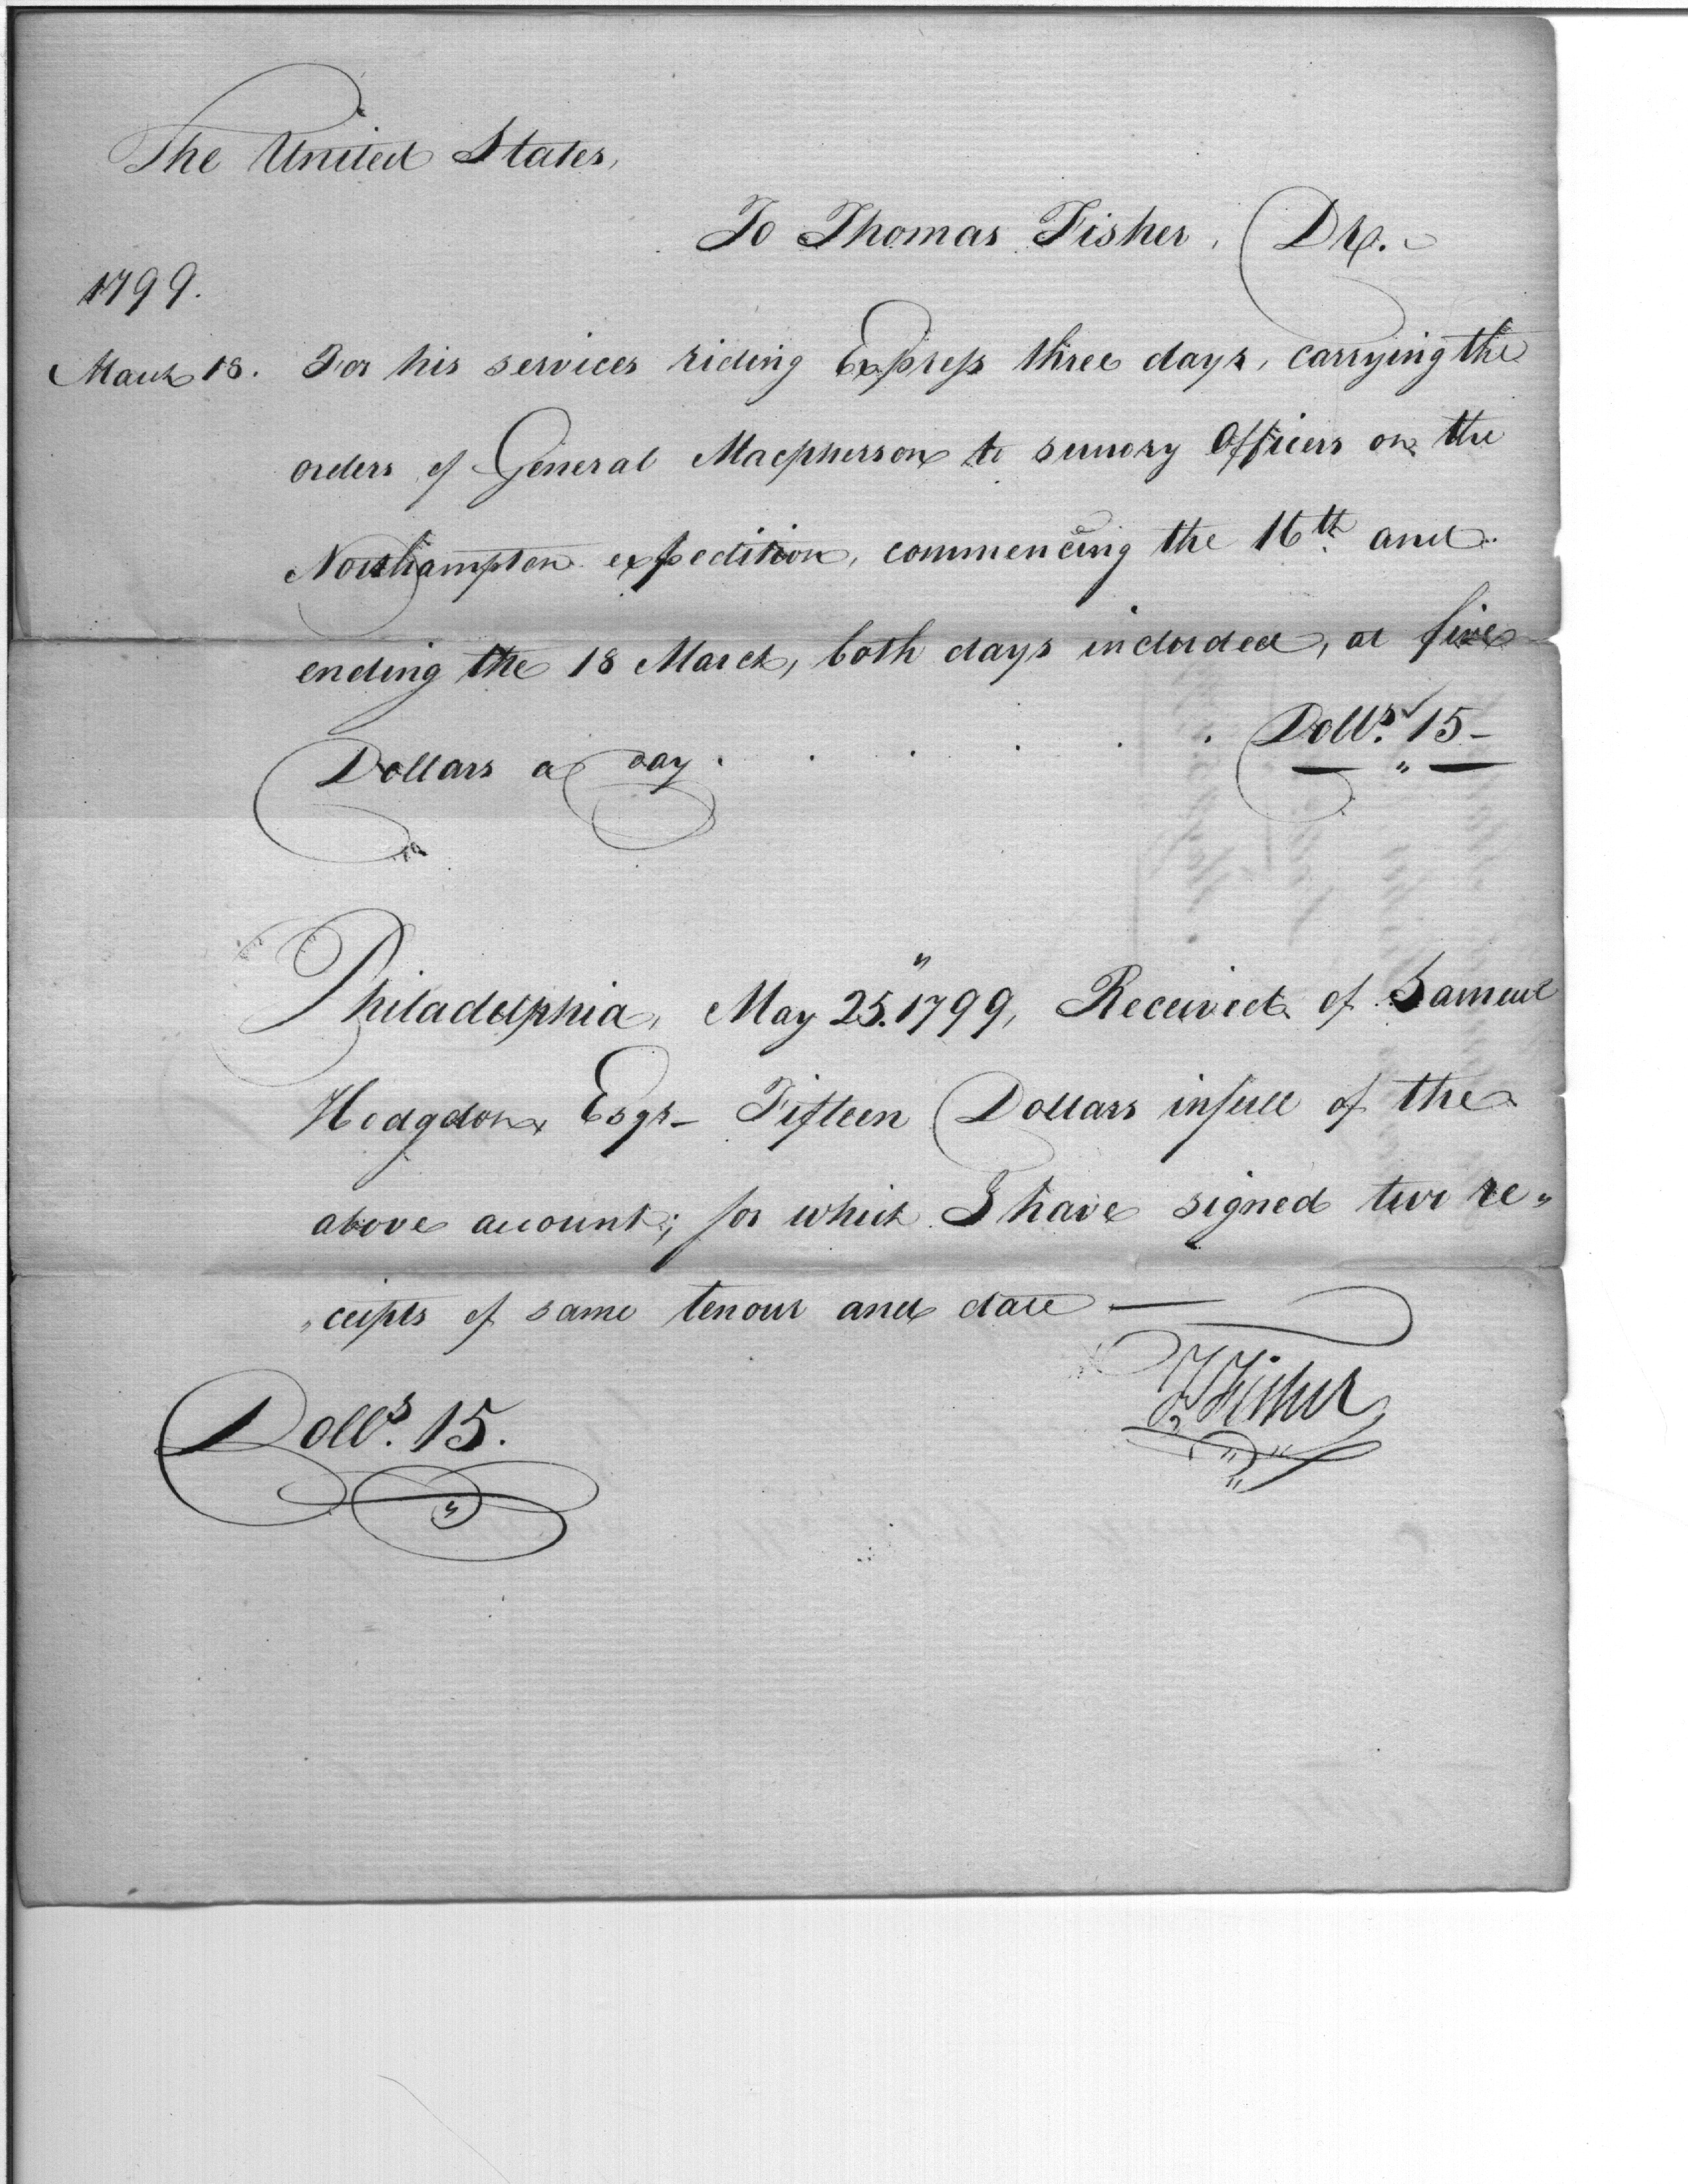 The United States,
To Thomas Fisher, Dr.
1799.
March 18. For his services riding Express three days, carrying the
orders of General Macpherson to sundry Officers on the
Northampton expedition, commencing the 16th and
ending the 18 March, both days included, at five
Dollars a day . . . . . Dolls. 15-
Philadelphia, May 25. 1799, Received of Samuel
Hodgdon Esqr- Fifteen Dollars in full of the
above account; for which I have signed two re"
"ceipts of same tenour and date —
T Fisher
Dolls. 15.